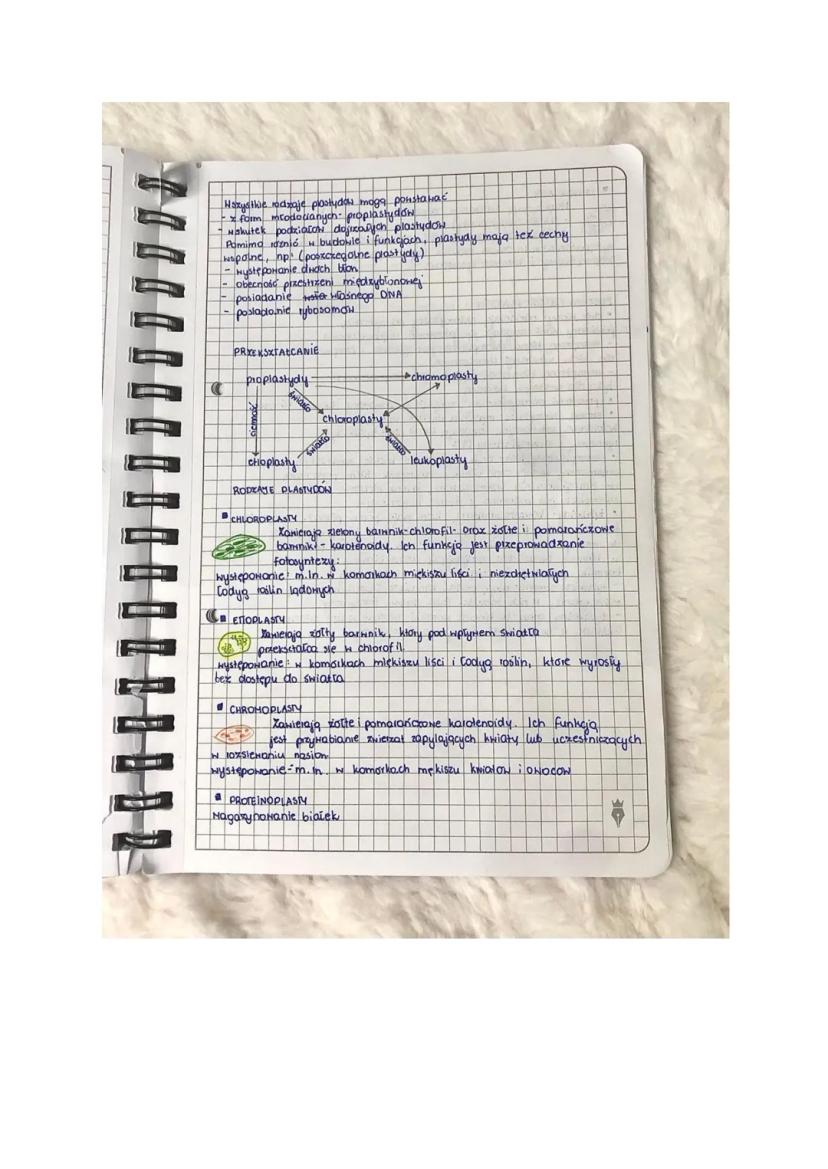 Wszystkie rodzaje plastydów mogą powstawać
- z form młodocianych - proplastydów
- wskutek podziałów dojrzałych plastydów
Pomimo różnic w budowie i funkcjach, plastydy mają też cechy
wspólne, np: (poszczególne plastydy)
- występowanie dwóch błon
- obecność przestrzeni międzybłonowej
- posiadanie własnego DNA
- posiadanie rybosomów
PRZEKSZTAŁCANIE
proplastydy
chromoplasty
światło
ciemność
chloroplasty
światło
światło
etioplasty
leukoplasty
RODZAJE PLASTYDÓW
CHLOROPLASTY
Zawierają zielony barwnik-chlorofil- oraz żółte i pomarańczowe
barwniki - karotenoidy. Ich funkcją jest przeprowadzanie
fotosyntezy.
występowanie: m.in. w komórkach miękiszu liści i niezdrewniałych
łodyg roślin lądowych
ETIOPLASTY
Zawierają żółty barwnik, który pod wpływem światła
przekształca się w chlorofil.
występowanie: w komórkach miękiszu liści i łodyg roślin, które wyrosły
bez dostępu do światła
CHROMOPLASTY
Zawierają żółte i pomarańczowe karotenoidy. Ich funkcją
jest przywabianie zwierząt zapylających kwiaty lub uczestniczących
w rozsiewaniu nasion
występowanie - m.in. w komórkach mękiszu kwiatów i owoców
PROTEINOPLASTY
Magazynowanie białek